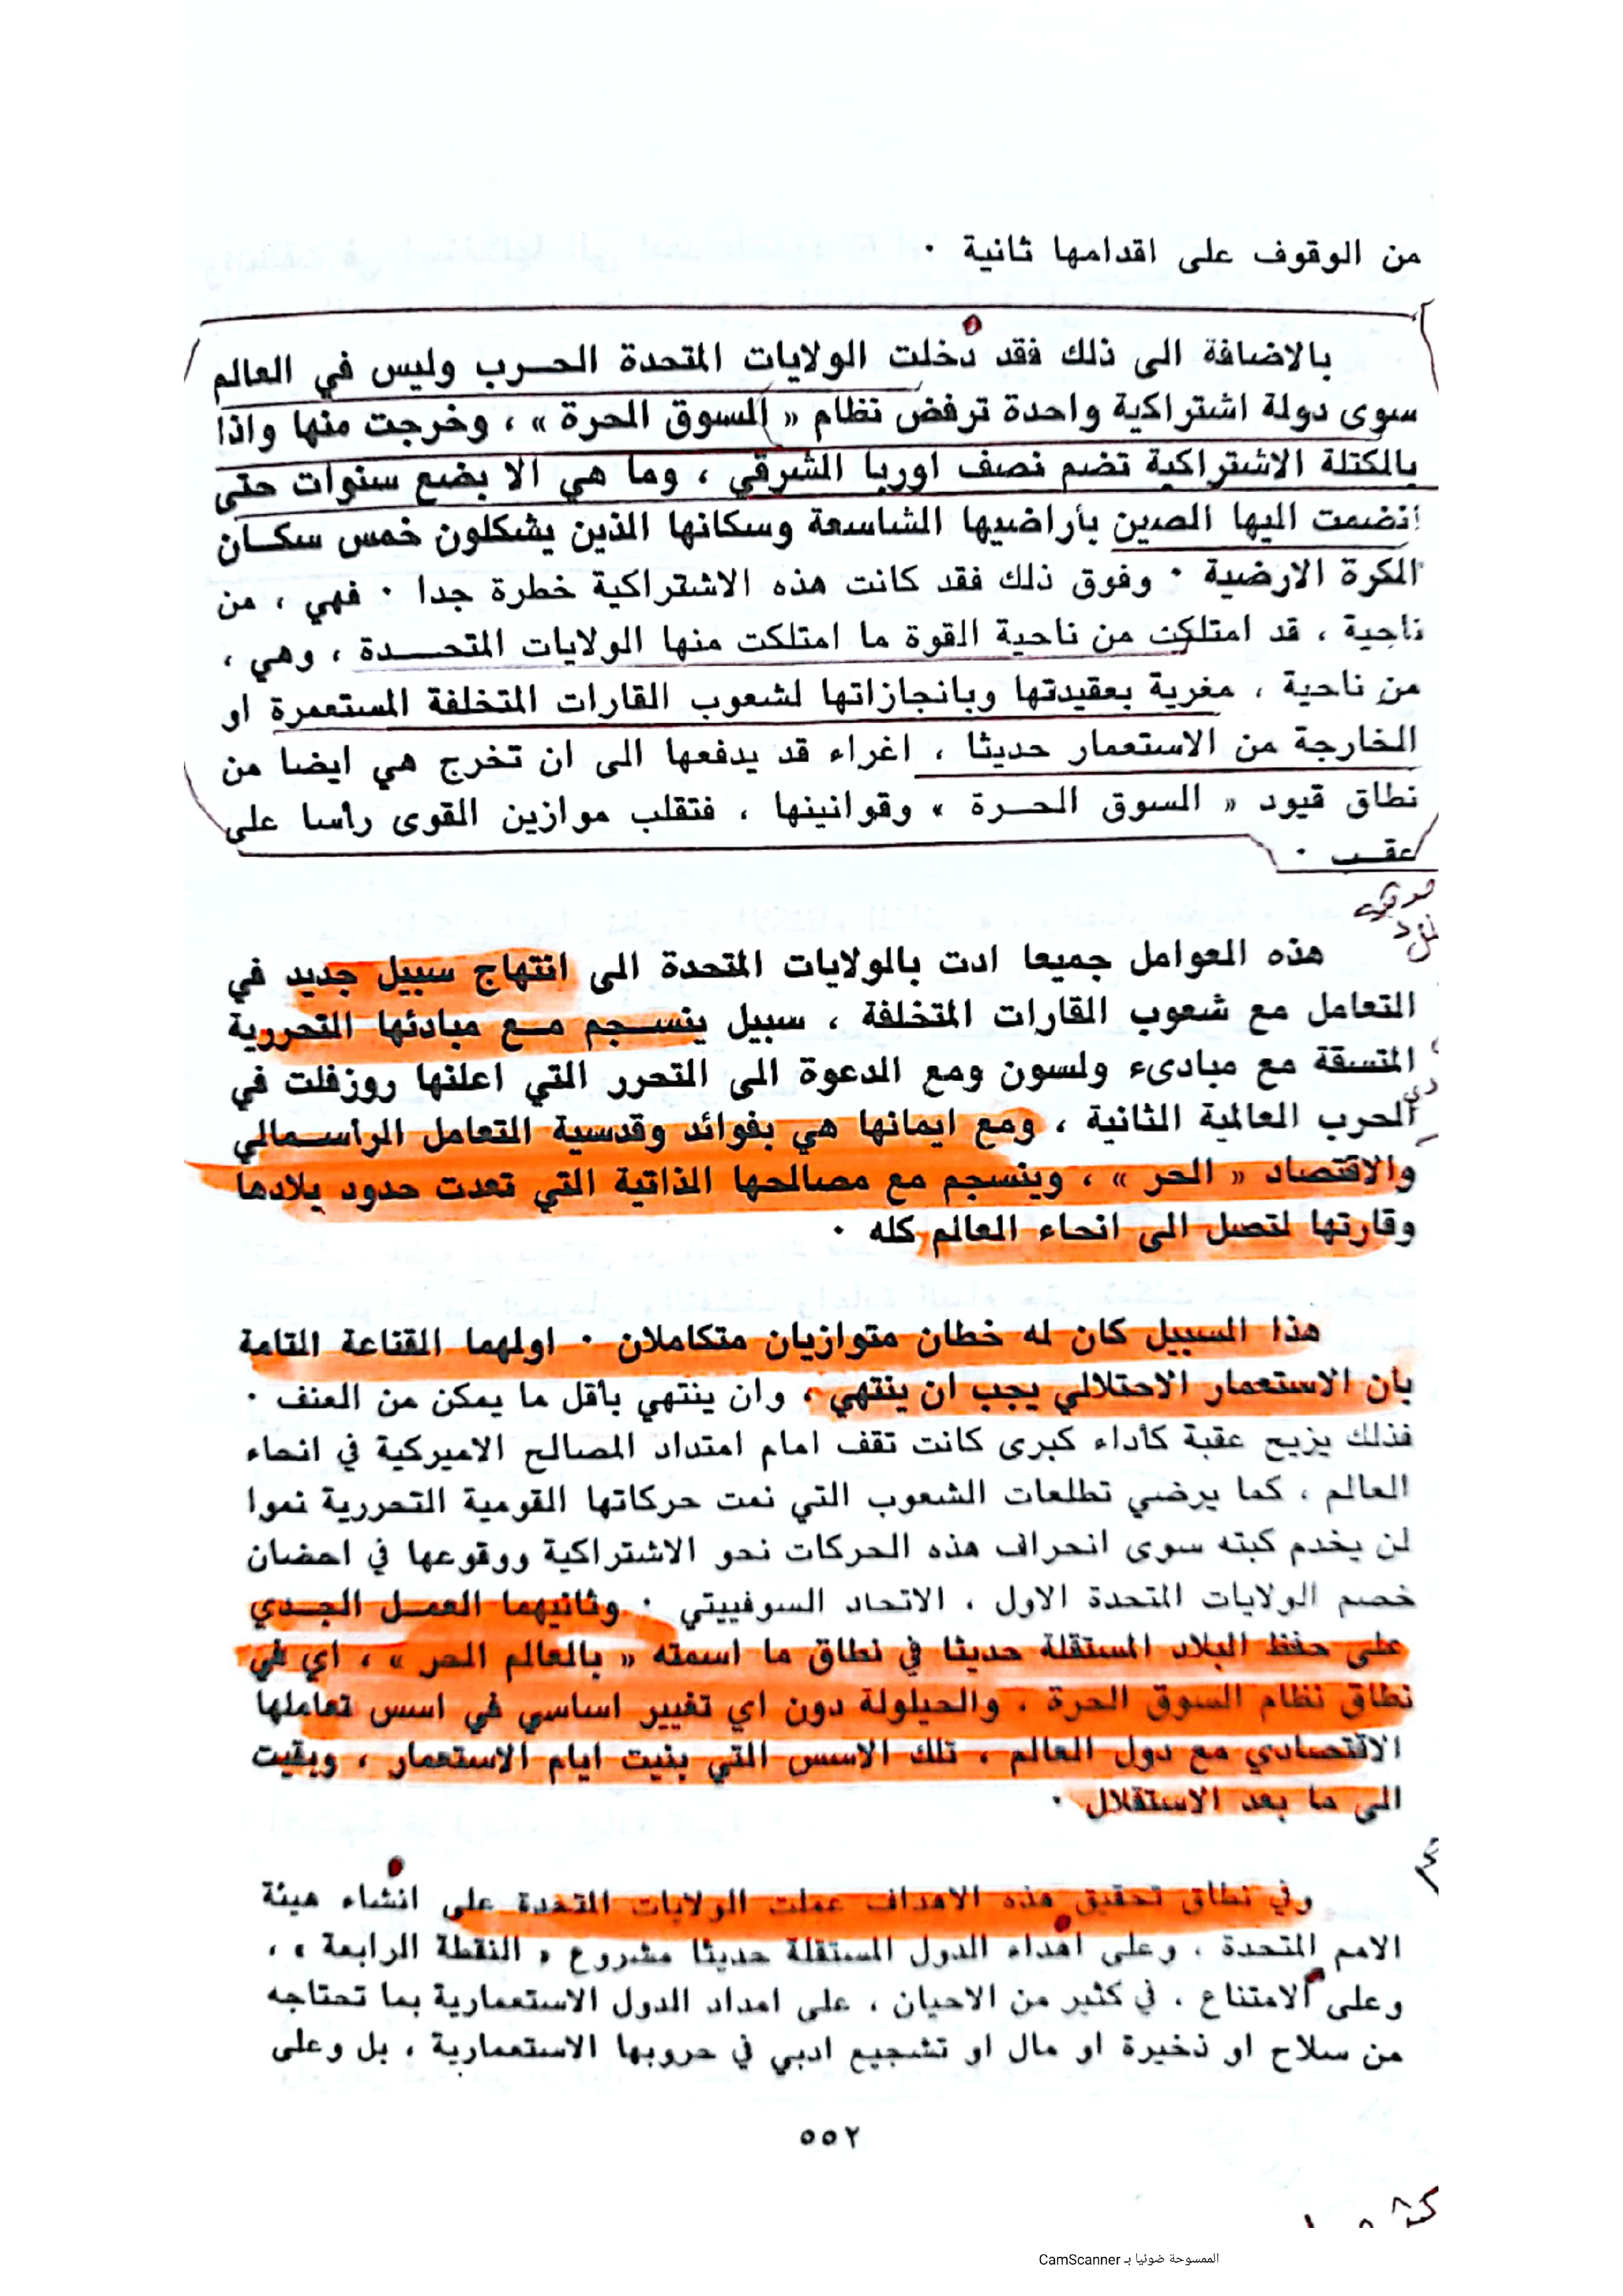 من الوقوف على اقدامها ثانية ٠
بالاضافة الى ذلك فقد دخلت الولايات المتحدة الحرب وليس في العالم
سوى دولة اشتراكية واحدة ترفض نظام « السوق الحرة » ، وخرجت منها واذا
بالكتلة الاشتراكية تضم نصف اوربا الشرقي ، وما هي الا بضع سنوات حتى
انضمت اليها الصين بأراضيها الشاسعة وسكانها الذين يشكلون خمس سكان
الكرة الارضية ٠ وفوق ذلك فقد كانت هذه الاشتراكية خطرة جدا ٠ فهي ، من
ناحية ، قد امتلكت من ناحية القوة ما امتلكت منها الولايات المتحدة ، وهي ،
من ناحية ، مغرية بعقيدتها وبانجازاتها لشعوب القارات المتخلفة المستعمرة او
الخارجة من الاستعمار حديثا ، اغراء قد يدفعها الى ان تخرج هي ايضا من
نطاق قيود « السوق الحرة » وقوانينها ، فتقلب موازين القوى رأسا على
عقب ٠
هذه العوامل جميعا ادت بالولايات المتحدة الى انتهاج سبيل جديد في
التعامل مع شعوب القارات المتخلفة ، سبيل ينسجم مع مبادئها التحررية
المتسقة مع مبادىء ولسون ومع الدعوة الى التحرر التي اعلنها روزفلت في
الحرب العالمية الثانية ، ومع ايمانها هي بفوائد وقدسية التعامل الراسمالي
والاقتصاد « الحر » ، وينسجم مع مصالحها الذاتية التي تعدت حدود بلادها
وقارتها لتصل الى انحاء العالم كله ٠
هذا السبيل كان له خطان متوازيان متكاملان ٠ اولهما القناعة التامة
بان الاستعمار الاحتلالي يجب ان ينتهي ، وان ينتهي بأقل ما يمكن من العنف ٠
فذلك يزيح عقبة كأداء كبرى كانت تقف امام امتداد المصالح الاميركية في انحاء
العالم ، كما يرضي تطلعات الشعوب التي نمت حركاتها القومية التحررية نموا
لن يخدم كبته سوى انحراف هذه الحركات نحو الاشتراكية ووقوعها في احضان
خصم الولايات المتحدة الاول ، الاتحاد السوفييتي ٠ وثانيهما العمل الجدي
على حفظ البلاد المستقلة حديثا في نطاق ما اسمته « بالعالم الحر » ، اي في
نطاق نظام السوق الحرة ، والحيلولة دون اي تغيير اساسي في اسس تعاملها
الاقتصادي مع دول العالم ، تلك الاسس التي بنيت ايام الاستعمار ، وبقيت
الى ما بعد الاستقلال ٠
وفي نطاق تحقيق هذه الاهداف عملت الولايات المتحدة على انشاء هيئة
الامم المتحدة ، وعلى اهداء الدول المستقلة حديثا مشروع « النقطة الرابعة » ،
وعلى الامتناع ، في كثير من الاحيان ، على امداد الدول الاستعمارية بما تحتاجه
من سلاح او ذخيرة او مال او تشجيع ادبي في حروبها الاستعمارية ، بل وعلى
٥٥٢
الممسوحة ضوئيا بـ CamScanner